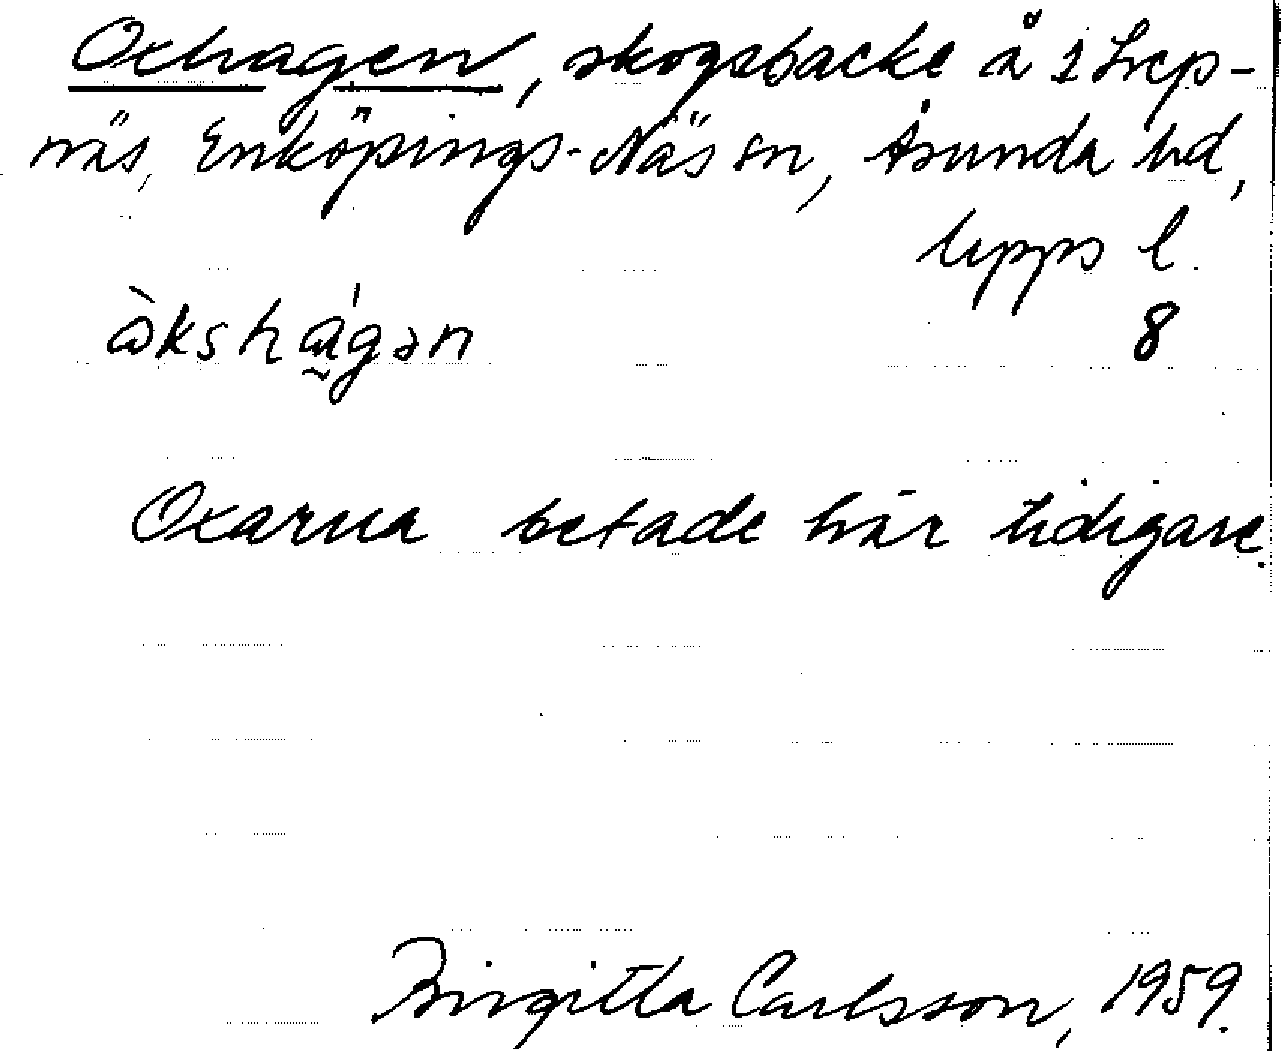 Oxhagen, skogsbacke å 1 Skep-
näs, Enköpings-Näs sn, Åsunda hd,
Upps l.
8
Oxarna betade här tidigare.
Birgitta Carlsson, 1959.